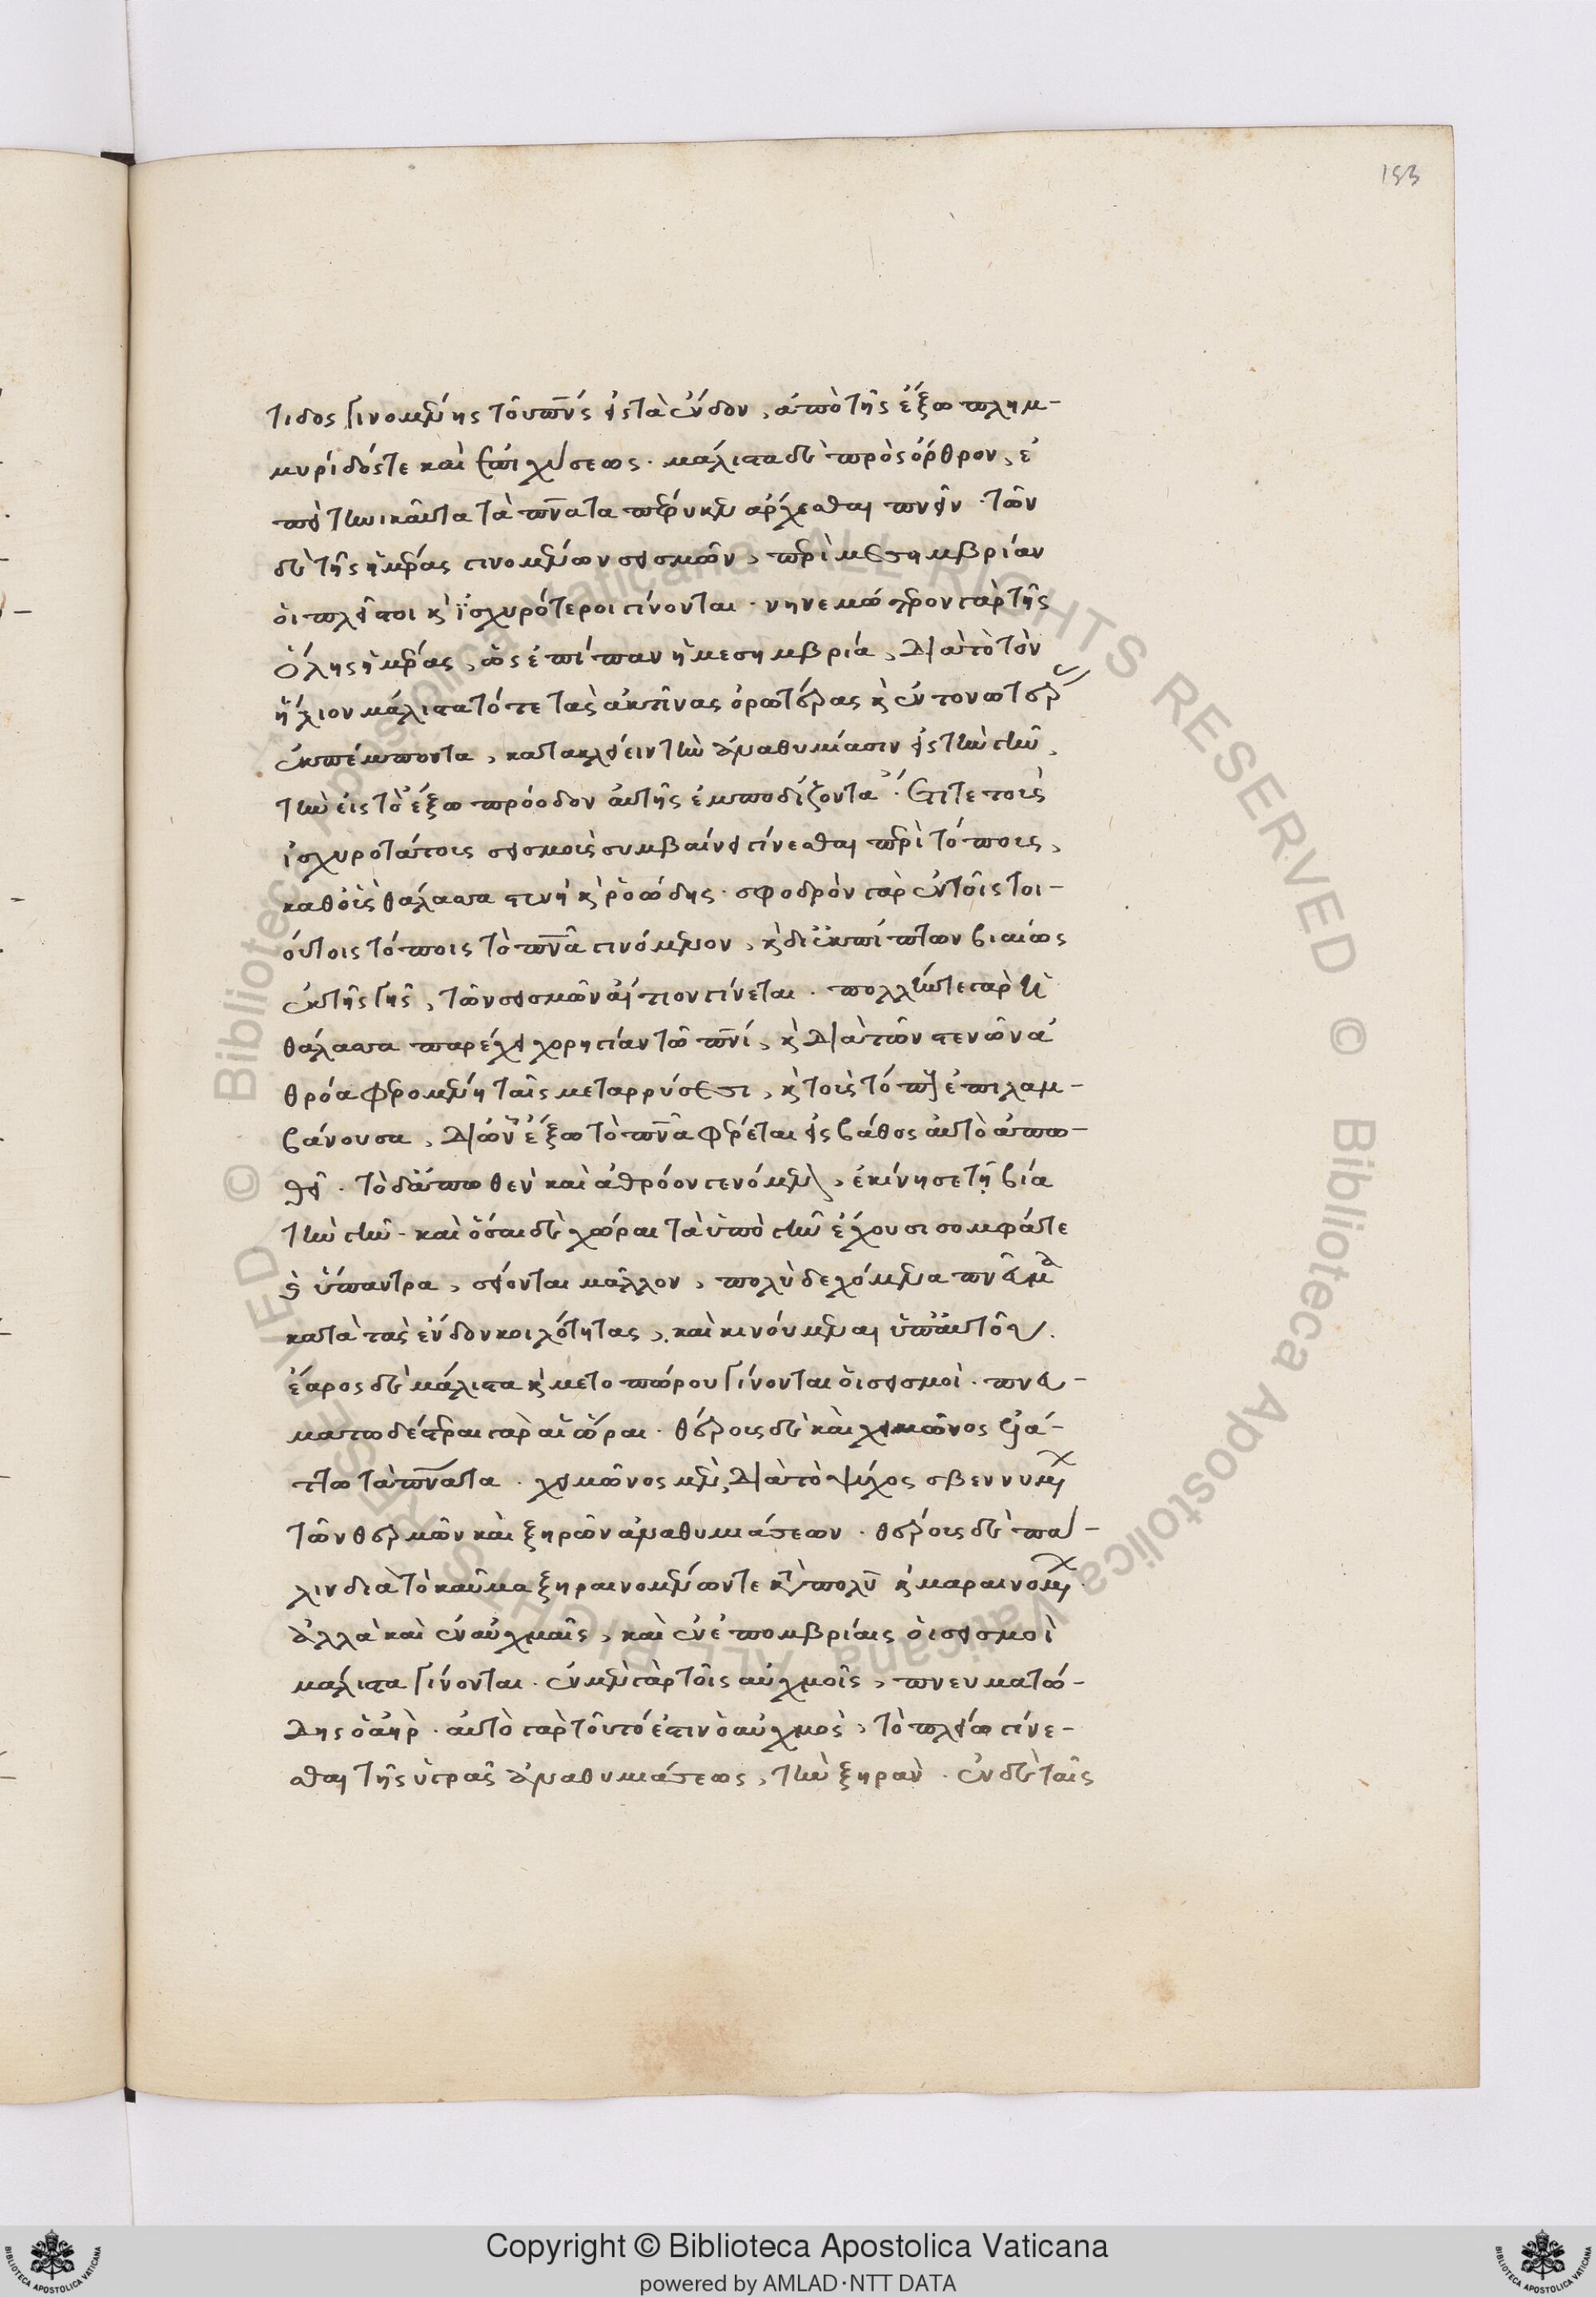 153
τιδος γινομένης τοῦ πνς εἰς τὰ ἔνδον, ἀπὸ τῆς ἔξω πλημ-
μυρίδός τε καὶ ἐπιχύσεως. μάλιστα δὲ πρὸς ὄρθρον, ἐ
πεὶ τηνικαῦτα τὰ πνατα πέφυκεν ἄρχεσθαι πνεῖν. τῶν
δὲ τῆς ἡμέρας γινομένων σεισμῶν, περὶ μεσημβρίαν
οἱ πλεῖστοι κ ἰσχυρότεροι γίνονται. νηνεμώτερον γὰρ τῆς
ὅλης ἡμέρας, ὡς ἐπίπαν ἡ μεσημβρία, διὰ τὸ τὸν
ἥλιον μάλιστα τότε τὰς ἀκτῖνας κ ἐντονωτέρας
ἐκπέμποντα, κατακλείειν τὴν ἀναθυμίασιν εἰς τὴν γῆν,
τὴν εἰς τὸ ἔξω πρόοδον αὐτῆς ἐμποδίζοντα. ἔτι τε τοὺς
ἰσχυροτάτους σεισμοὺς συμβαίνει γίνεσθαι περὶ τόπους,
καθ' οὓς θάλασσα στενὴ κ ῥοώδης. σφοδρὸν γὰρ ἐν τοῖς τοι-
ούτοις τόποις τὸ πνα γινόμενον, κ διεκπίπτων βιαίως
ἐκ τῆς γῆς, τῶν σεισμῶν αἴτιον γίνεται. πολλήν τε γὰρ ἡ
θάλασσα παρέχει χορηγίαν τῶ πνι, κ διὰ τῶν στενῶν ἀ
θρόα φερομένη ταῖς μεταρρύσεσι, κ τοὺς τόπους ἐπιλαμ-
βάνουσα, δι' ὧν ἔξω τὸ πνα φέρεται εἰς βάθος αὐτὸ ἀπω-
θεῖ. τὸ δ' ἀπωθεν καὶ ἀθρόον γενόμενον, ἐκίνησε τῆ βία
τὴν γῆν. καὶ ὅσαι δὲ χῶραι τὰ ὑπὸ γῆν ἔχουσι σομφά τε
κ ὕπαντρα, σείονται μᾶλλον, πολὺ δεχόμενα πνεῦμα
κατὰ τὰς ἔνδον κοιλότητας, καὶ κινούμεναι ὑπ' αὐτοῦ.
ἔαρος δὲ μάλιστα κ μετοπώρου γίνονται οἱ σεισμοί. πνευ-
ματωδέστεραι γὰρ αἱ ὧραι. θέρους δὲ καὶ χειμῶνος ἐλά-
ττω τὰ πνατα. χειμῶνος μὲν, διὰ τὸ ψύχος σβεννυμένων
τῶν θερμῶν καὶ ξηρῶν ἀναθυμιάσεων. θέρους δὲ πά-
λιν διὰ τὸ καῦμα ξηραινομένων τε ἐπιπολὺ κ μαραινομένων.
ἀλλὰ καὶ ἐν αὐχμαῖς, καὶ ἐν ἐπομβρίαις οἱ σεισμοὶ
μάλιστα γίνονται. ἐν μὲν γὰρ τοῖς αὐχμοῖς, πνευματώ-
δης ὁ ἀὴρ. αὐτὸ γὰρ τοῦτό ἐστιν ὁ αὐχμὸς, τὸ πλείω γίνε-
σθαι τῆς ὑγρᾶς ἀναθυμιάσεως, τὴν ξηρὰν. ἐν δὲ ταῖς
Copyright © Biblioteca Apostolica Vaticana
powered by AMLAD·NTT DATA